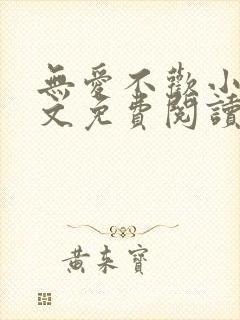 無愛不歡小
文免費閱讀
黃来寶